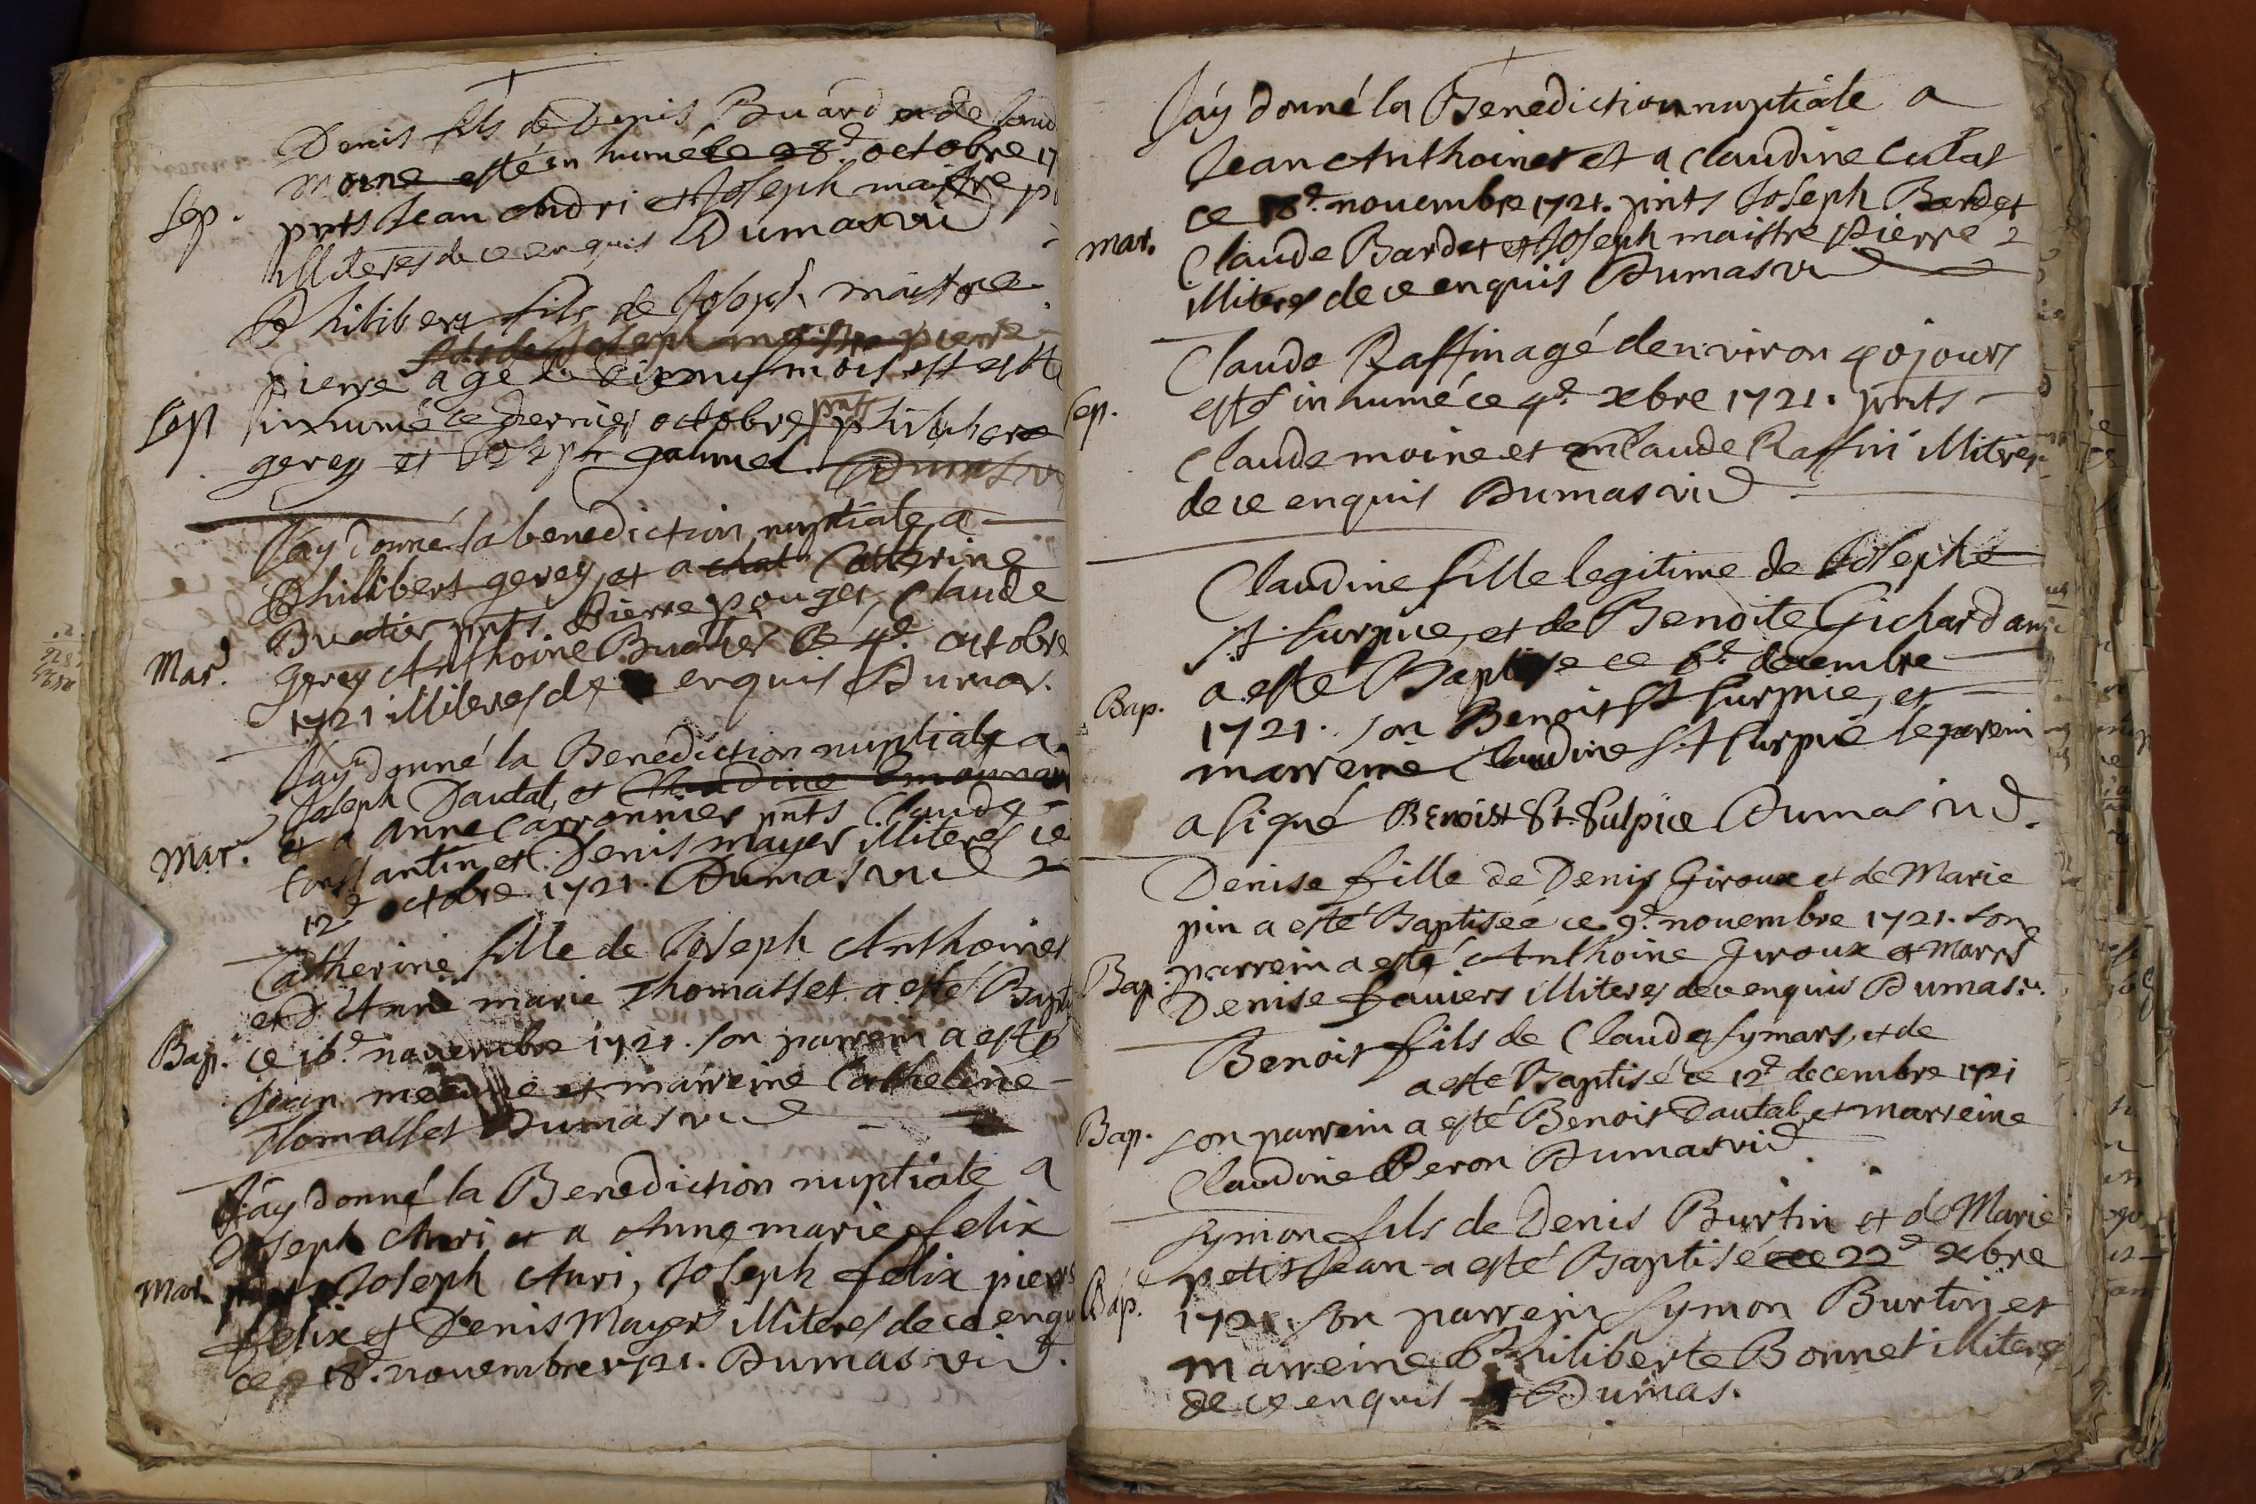 Denis fils de Denis Buard et de
moine esté en humé ce 28e octobre 17
Sep.
pnts Jean Andri et Joseph maistre pi
illiteres de ce enquis Dumas vic
Philibert fils de Joseph maistre
fils de Joseph maistre pierre
pierre agé de mois est esté
Sep
inhumé ce dernier octobre pnts philibert
gerey et Joseph gaumel. Dumas vi
Jay donné la benediction nuptiale a
Philibert gerey et a chat Catherine
Buatier pnts Pierre pouget, Claude
Mar.
gerey Anthoine Buatier ce 4e octobre
1721 illiteres de enquis Dumas.
Jay donné la Benediction nuptiale a
Joseph Dautal et Claudine
et a Anne Carronnier pnts Claude
Mar.
Constantin et Denis mayer illiteres ce
12e octobre 1721. Dumas vic
Catherine fille de Joseph Anthoinet
et d'Anne marie Thomasset a esté Bapti
Bap.
ce 16e novembre 1721. son parrein a esté
Jean et marreine Catheline
Thomasset Dumas vic
Jay donné la Benediction nuptiale a
Joseph Auri et a Anne marie felix
Mar.
Joseph Auri, Joseph felix pierre
felix et Denis Mayer illiteres de ce enqu
ce 18e. novembre 1721. Dumas vic.
Jay donné la Benediction nuptiale a
Jean Anthoinet et a Claudine Cutat
ce 18e. novembre 1721. pnts Joseph Bardet
mar.
Claude Bardet et Joseph maistre Pierre
illiteres de ce enquis Dumas vic
Claude Raffin agé denviron 40 jours
Sep.
esté inhumé ce 4e. xbre 1721. pnts
Claude moine et Claude Raffin illiteres
de ce enquis Dumas vic
Claudine fille legitime de Joseph
St surpice, et de Benoite Gichard
a esté Baptise ce 6e decembre
Bap.
1721. son Benoit St surpice, et
marreine Claudine St surpice le parrein
a signé BEnoist St. Sulpice Dumas vic.
Denise fille de Denis Giroux et de Marie
pin a esté Baptiseé ce 9e. novembre 1721. son
Bap.
parrein a esté Anthoine Giroux et marre
Denise faviers illiteres de ce enquis Dumas. v.
Benoit fils de Claude Symars, et de
a esté Baptisé ce 12e decembre 1721
Bap.
son parrein a esté Benoit Dautal et marreine
Claudine Peron Dumas vic
Symon fils de Denis Burtin et de Marie
petit Jean a esté Baptisé ce 22e xbre
Bap.
1721. son parrein Symon Burtin et
marreine Philiberte Bonnet illiteres
de ce enquis Dumas.